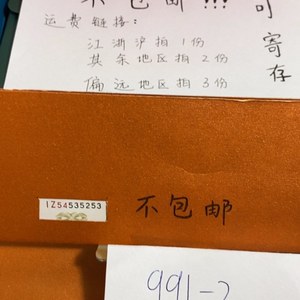 不包邮!!!
可寄存
运费链接:
江浙沪拍1份
其余地区拍2份
偏远地区拍3份
IZ54535253
不包邮
991-2